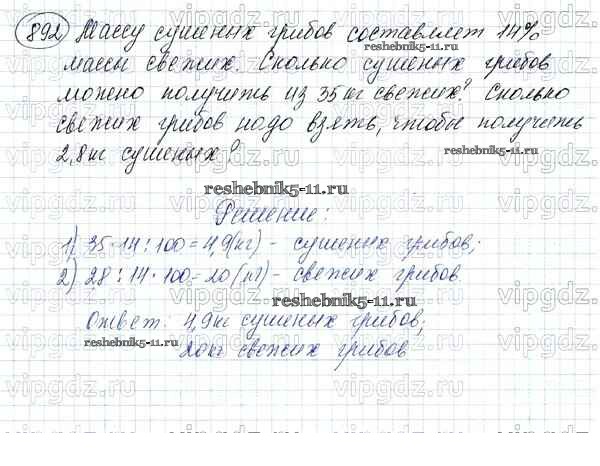 892 Массу сушеных грибов составляет 14%
массы свежих. Сколько сушеных грибов
можно получить из 35 кг свежих? Сколько
свежих грибов надо взять, чтобы получить
2,8 кг сушеных?
reshebnik5-11.ru
Решение:
1) 35·14:100=4,9(кг) - сушеных грибов;
2) 28:14·100=20(кг) - свежих грибов.
Ответ: 4,9кг сушеных грибов,
20кг свежих грибов
reshebnik5-11.ru
vipgdz.